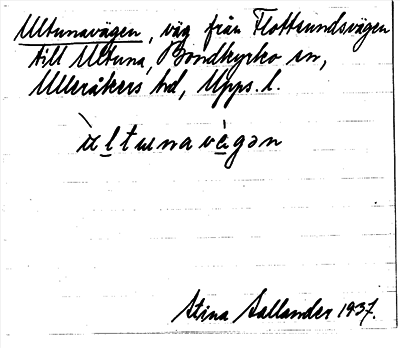 Ultunavägen, väg från Flottsundsvägen
till Ultuna, Bondkyrko sn,
Ulleråkers hd, Upps. l.
ùltɯnavä̀gən
Stina Sallander 1937.